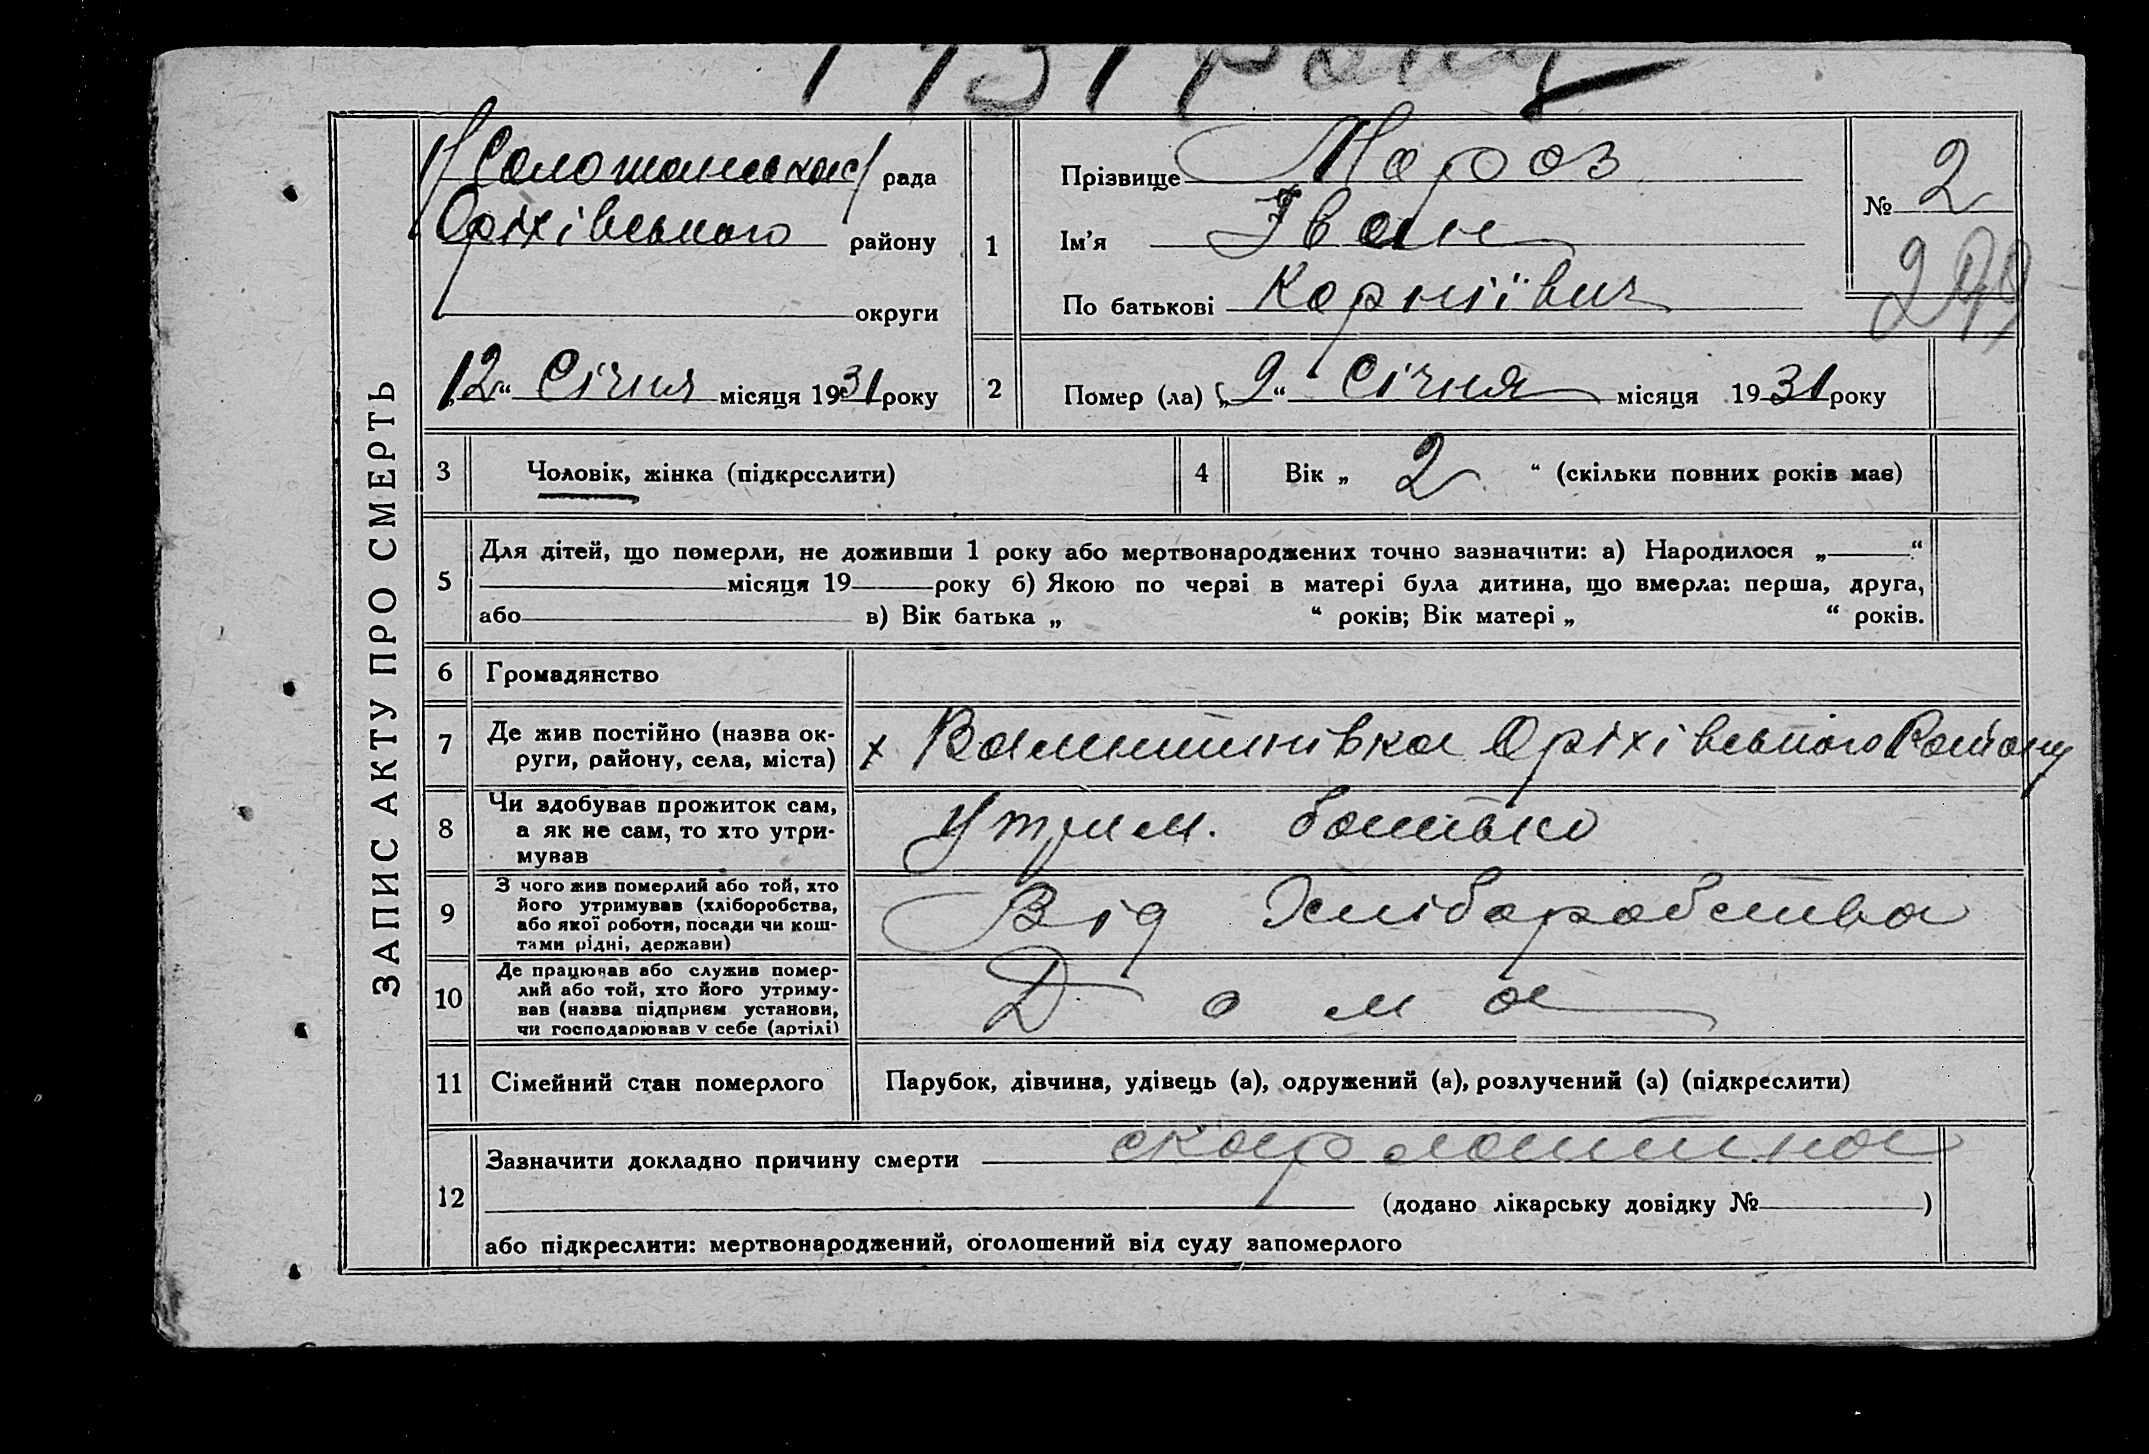 1931 року
Соломанська рада
Оріхівського району
округи
„12“ Січня місяця 1931 року
ЗАПИС АКТУ ПРО СМЕРТЬ
1
Прізвище Мороз
Ім'я Іван
По батькові Корніївич
№ 2
2 Помер (ла) „9“ Січня місяця 1931 року
3 Чоловік, жінка (підкреслити)
4 Вік „ 2 “ (скільки повних років має)
5
Для дітей, що померли, не доживши 1 року або мертвонароджених точно зазначити: а) Народилося „ “
місяця 19 року б) Якою по черзі в матері була дитина, що вмерла: перша, друга,
або в) Вік батька „ “ років; Вік матері „ “ років.
6 Громадянство
7 Де жив постійно (назва ок-
руги, району, села, міста)
х Валентинівка Оріхівського Району
8 Чи здобував прожиток сам,
а як не сам, то хто утри-
мував
Утрим. батько
9 З чого жив померлий або той, хто
його утримував (хліборобства,
або якої роботи, посади чи кош-
тами рідні, держави)
Від Хліборобства
10 Де працював або служив помер-
лий або той, хто його утриму-
вав (назва підприєм установи,
чи господарював у себе (артілі)
Дома
11 Сімейний стан померлого
Парубок, дівчина, удівець (а), одружений (а), розлучений (а) (підкреслити)
12
Зазначити докладно причину смерти скарлатина
(додано лікарську довідку № )
або підкреслити: мертвонароджений, оголошений від суду запомерлого